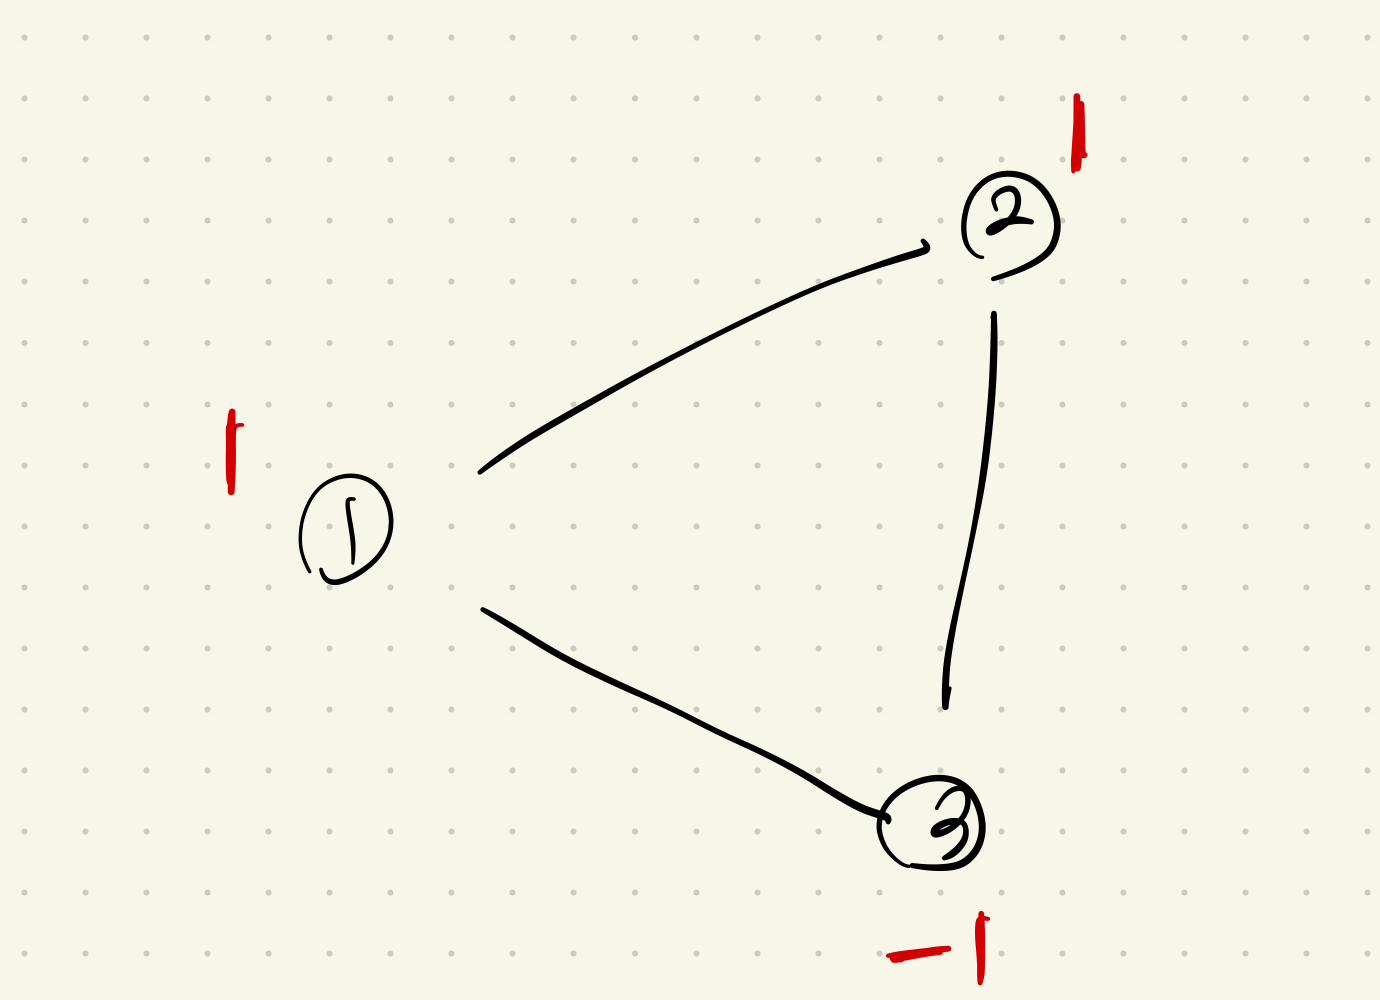 1
2
1
1
3
-1